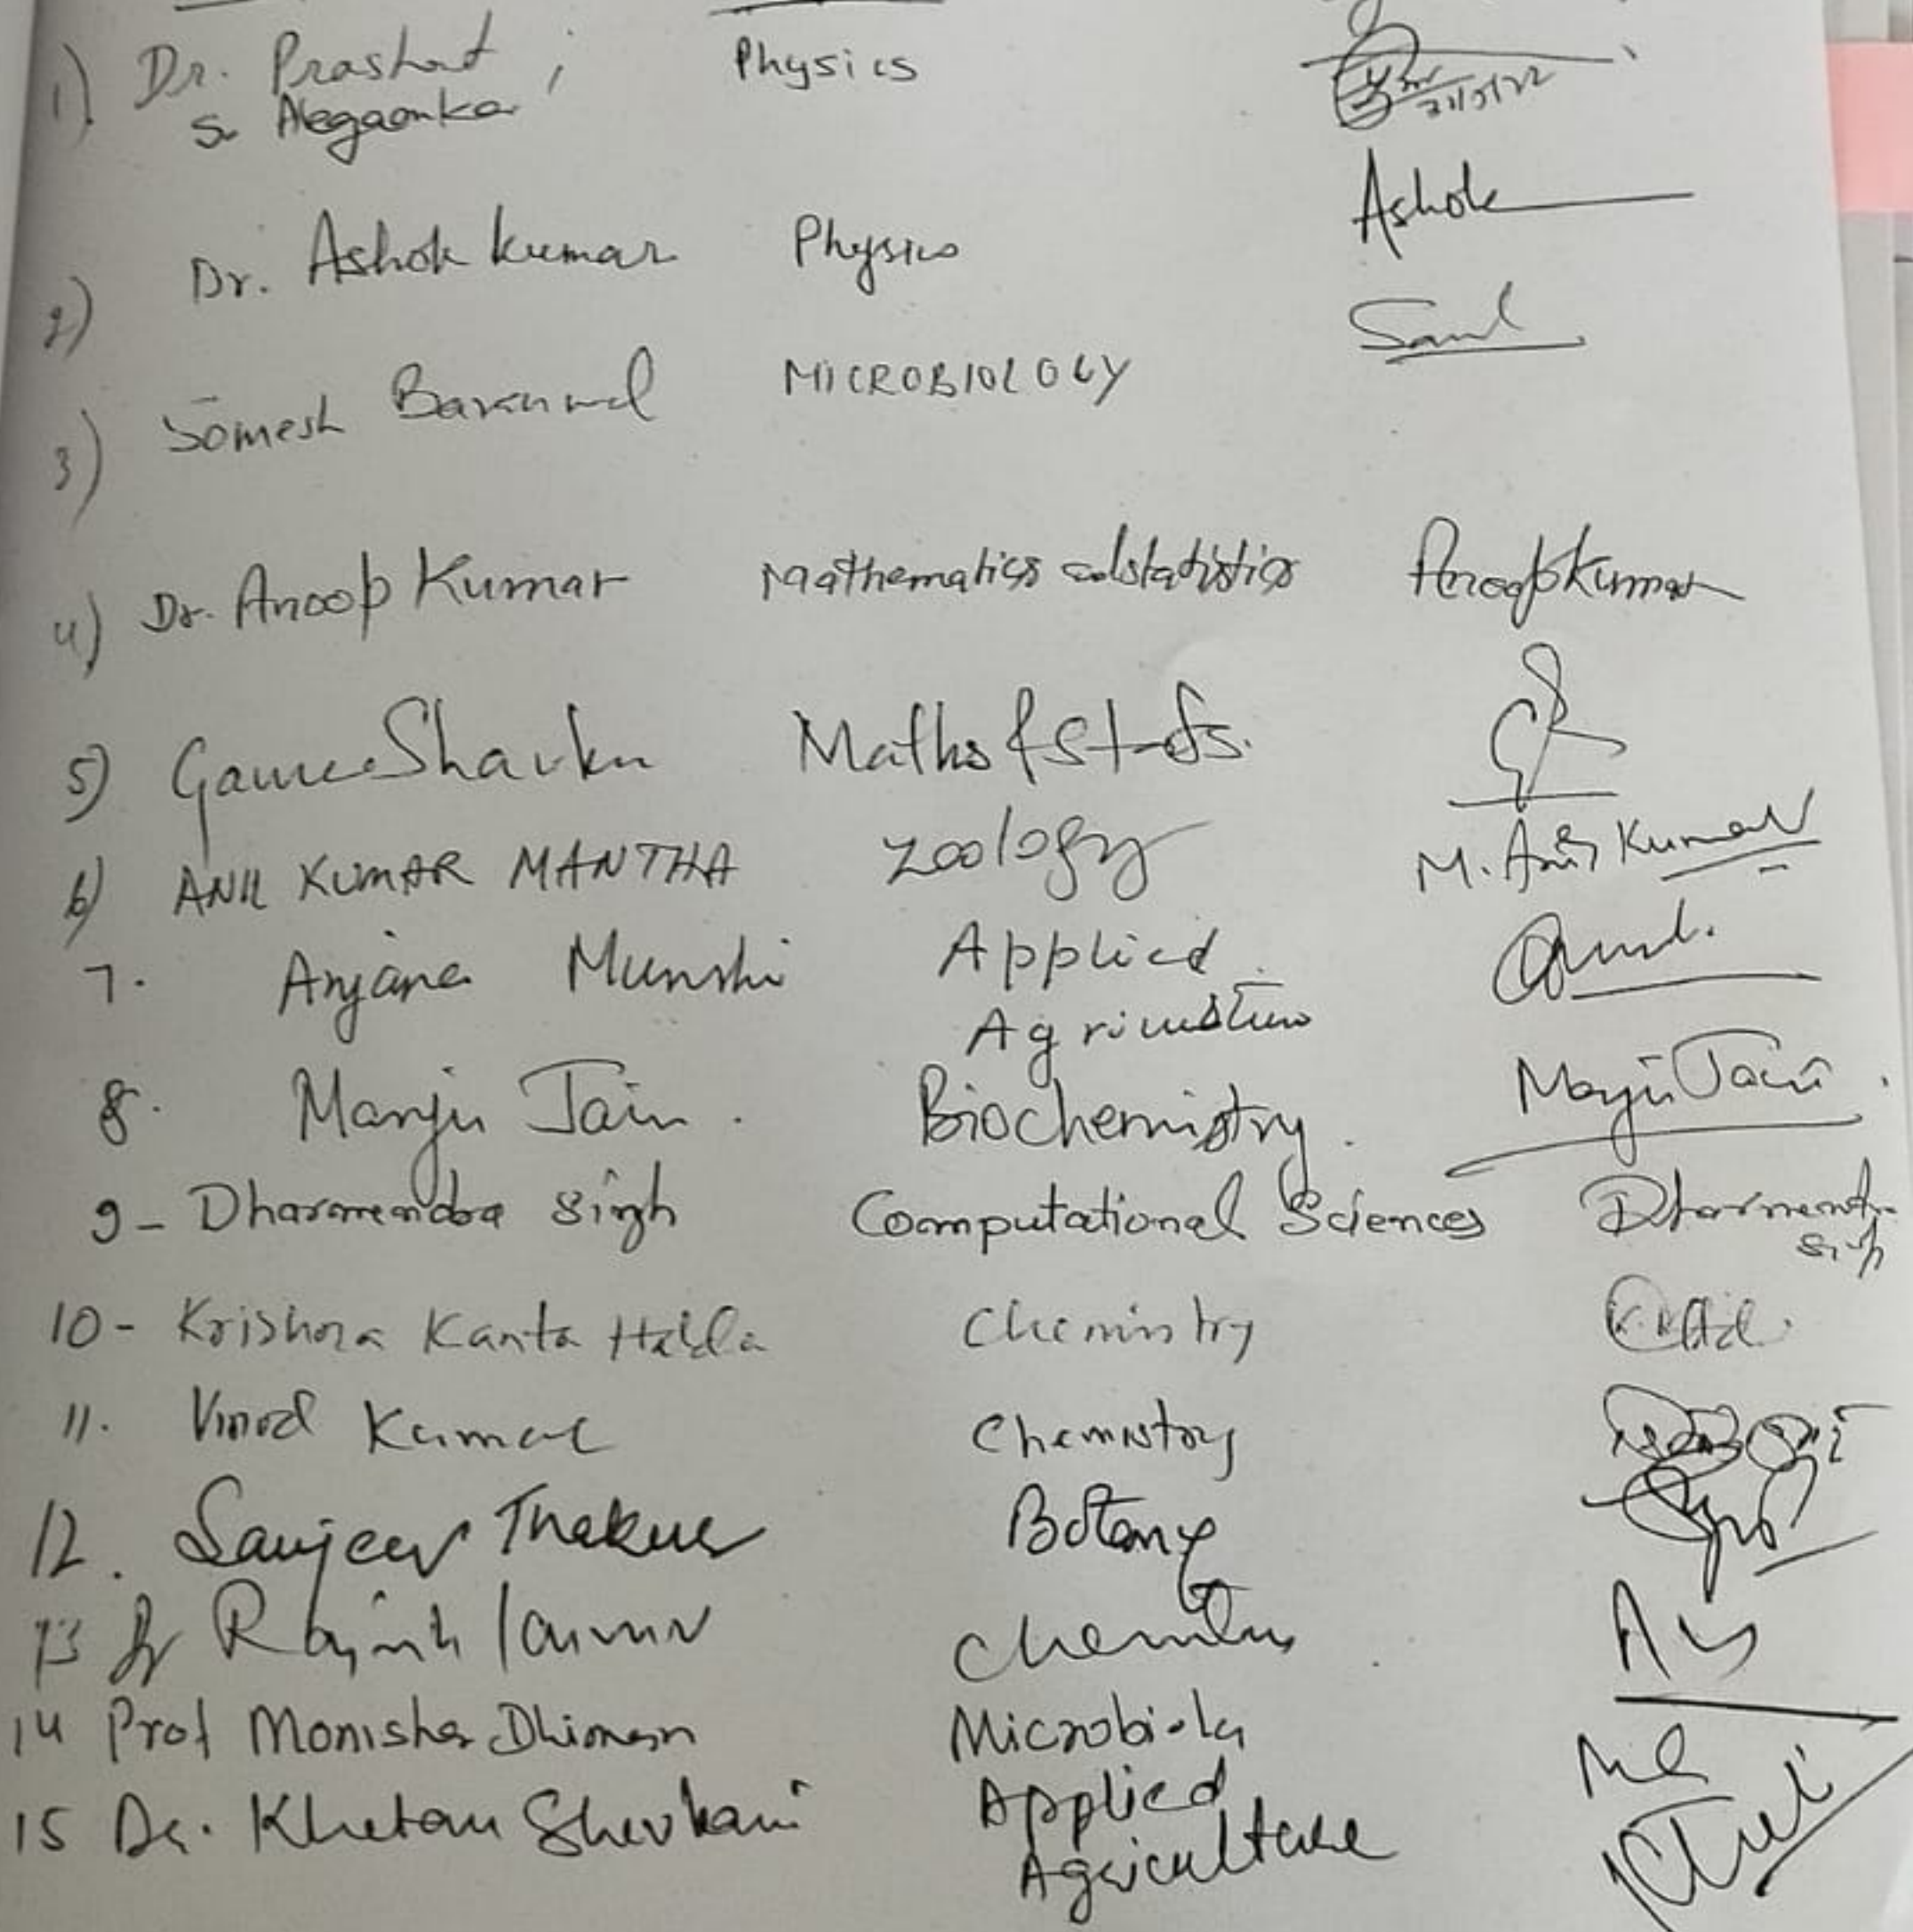 1) Dr. Prashant ; Physics
S. Alegaonkar
21/5/22
2) Dr. Ashok Kumar Physics Ashok
3) Somesh Baranwal MICROBIOLOGY
4) Dr. Anoop Kumar Mathematics and statistics Anoop Kumar
5) Maths & Stats.
6) ANIL KUMAR MANTHA Zoology M. Anil Kumar
7. Anjana Munshi Applied
Agriculture
8. Manju Jain. Biochemistry. Manju Jain.
9- Dharmendra Singh Computational Sciences Dharmendra
Singh
10- Krishna Kanta Halda Chemistry
11. Vinod Kumar Chemistry
12. Sanjeev Thakur Botany
13 Dr Chemistry
14 Prof Monisha Dhiman Microbiology
15 Dr. Khetan Shevkani Applied
Agriculture